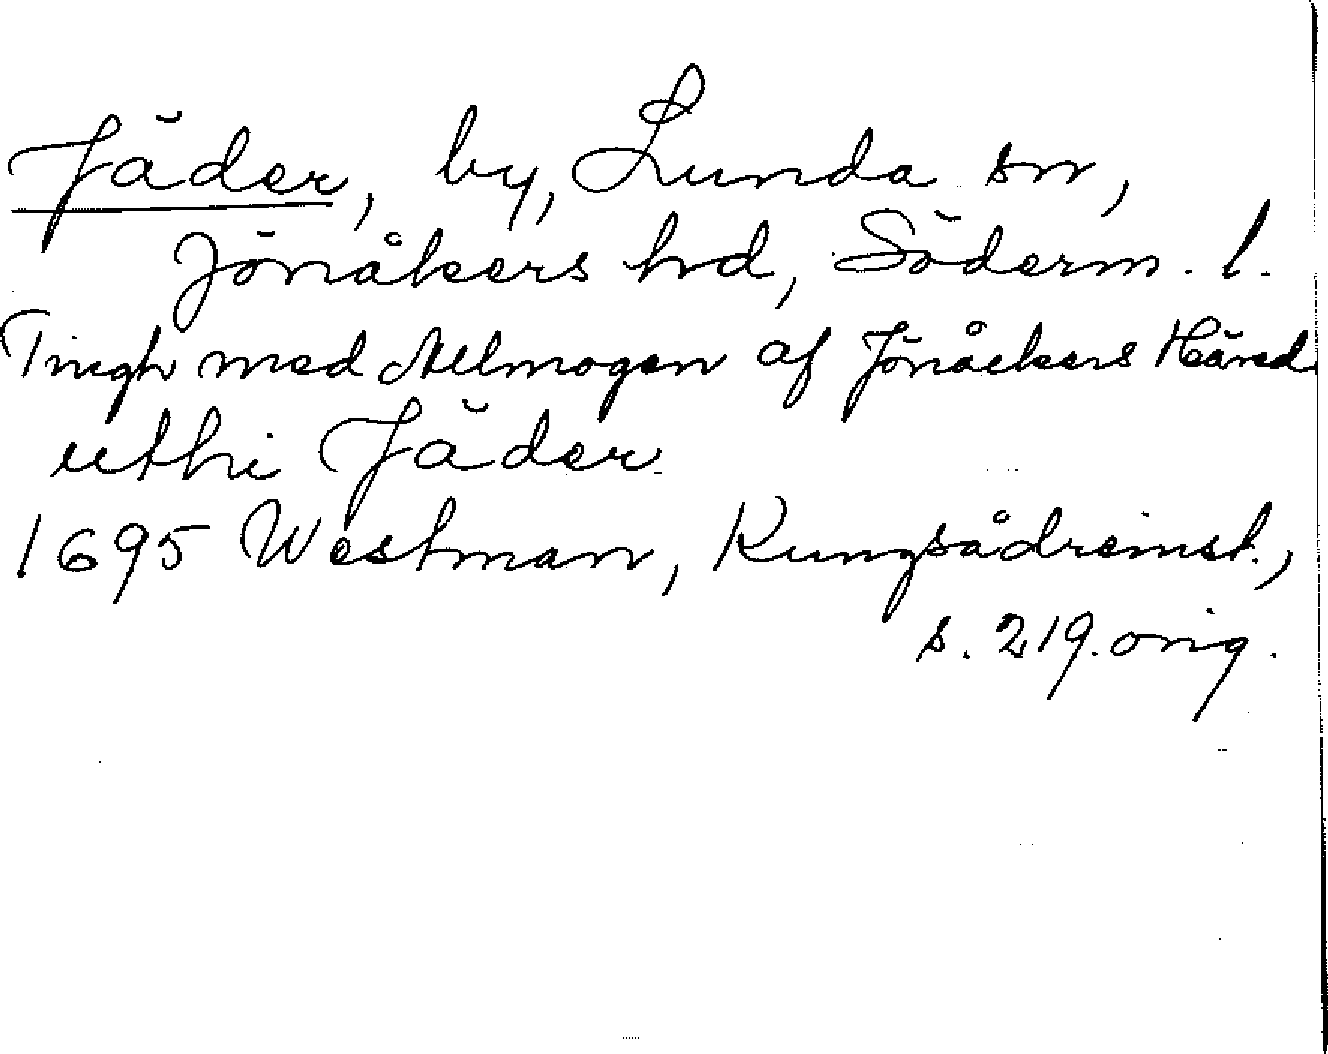 Jäder, by, Lunda sn,
Jönåkers hd, Söderm. l.
Tingh med Allmogen af Jönåckers Häred
uthi Jäder.
1695 Westman, Kungsådreinst.,
s. 219. orig.